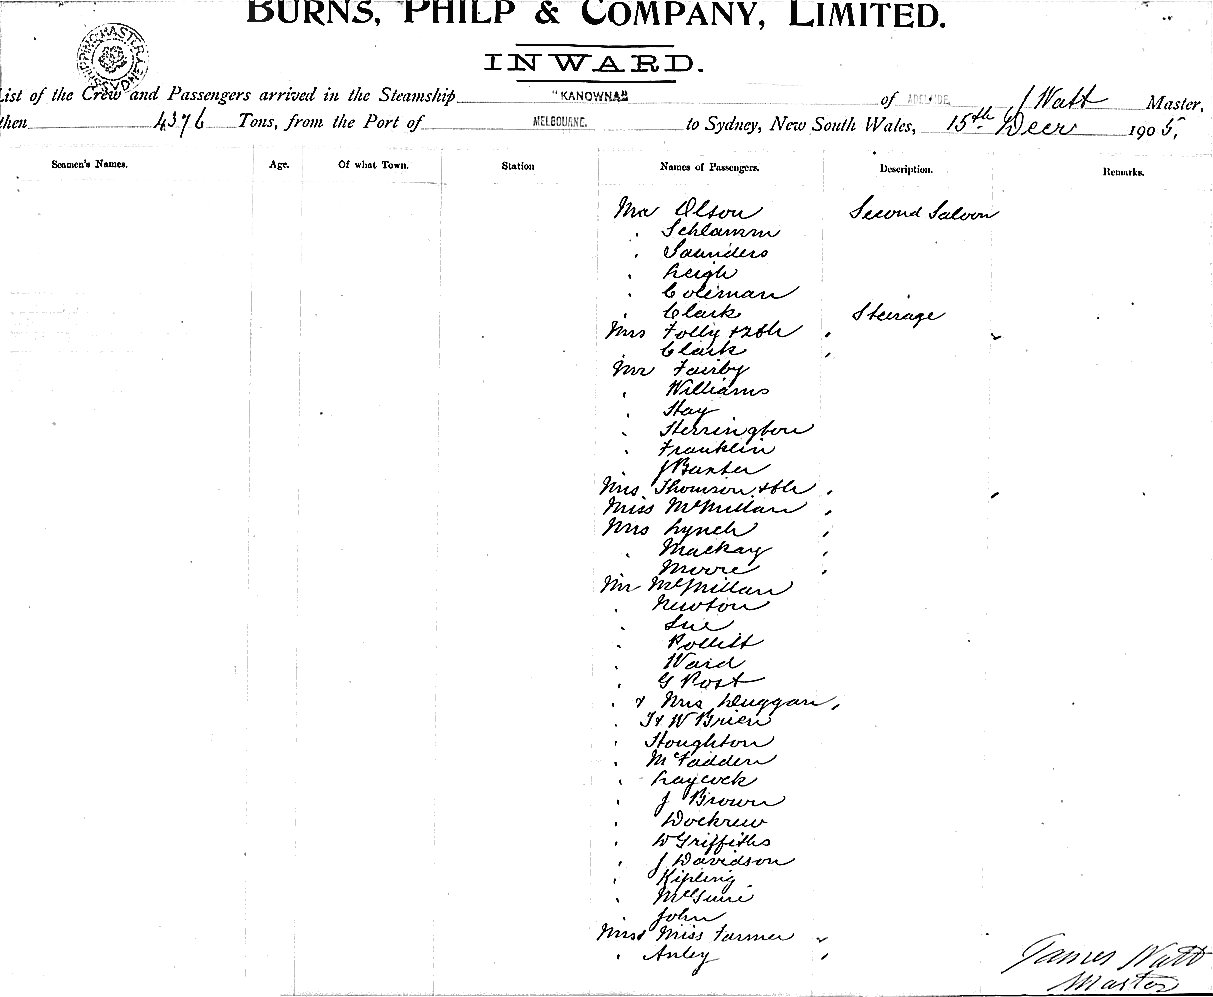 BURNS, PHILP & COMPANY, LIMITED.
INWARD.
List of the Crew and Passengers arrived in the Steamship "KANOWNA" of ADELAIDE, J Watt Master,
then 4376 Tons, from the Port of MELBOURNE. to Sydney, New South Wales, 15th Decr 1905,
Seamen's Names. Age. Of what Town. Station Names of Passengers. Description. Remarks.
Mr Olson Second Saloon
" Schlamm
" Saunders
" Leigh
" Coleman
" Clark Steerage
Mrs Folly + 2 ch "
" Clark "
Mr Fairby
" Williams
" Hay
" Herrington
" Franklin
" J Baxter
Mrs Thomson + ch "
Miss McMillan "
Mrs Lynch "
" Mackay "
" Moore "
Mr McMillan
" Newton
" Sue
" Pollitt
" Ward
" G Post
" & Mrs Duggan "
" J & W Brien
" Houghton
" McFadden
" Laycock
" J Brown
" Dockrew
" W Griffiths
" J Davidson
" Kipling
" McGuire
" John
Mrs & Miss Farmer "
" Anley "
James Watt
Master